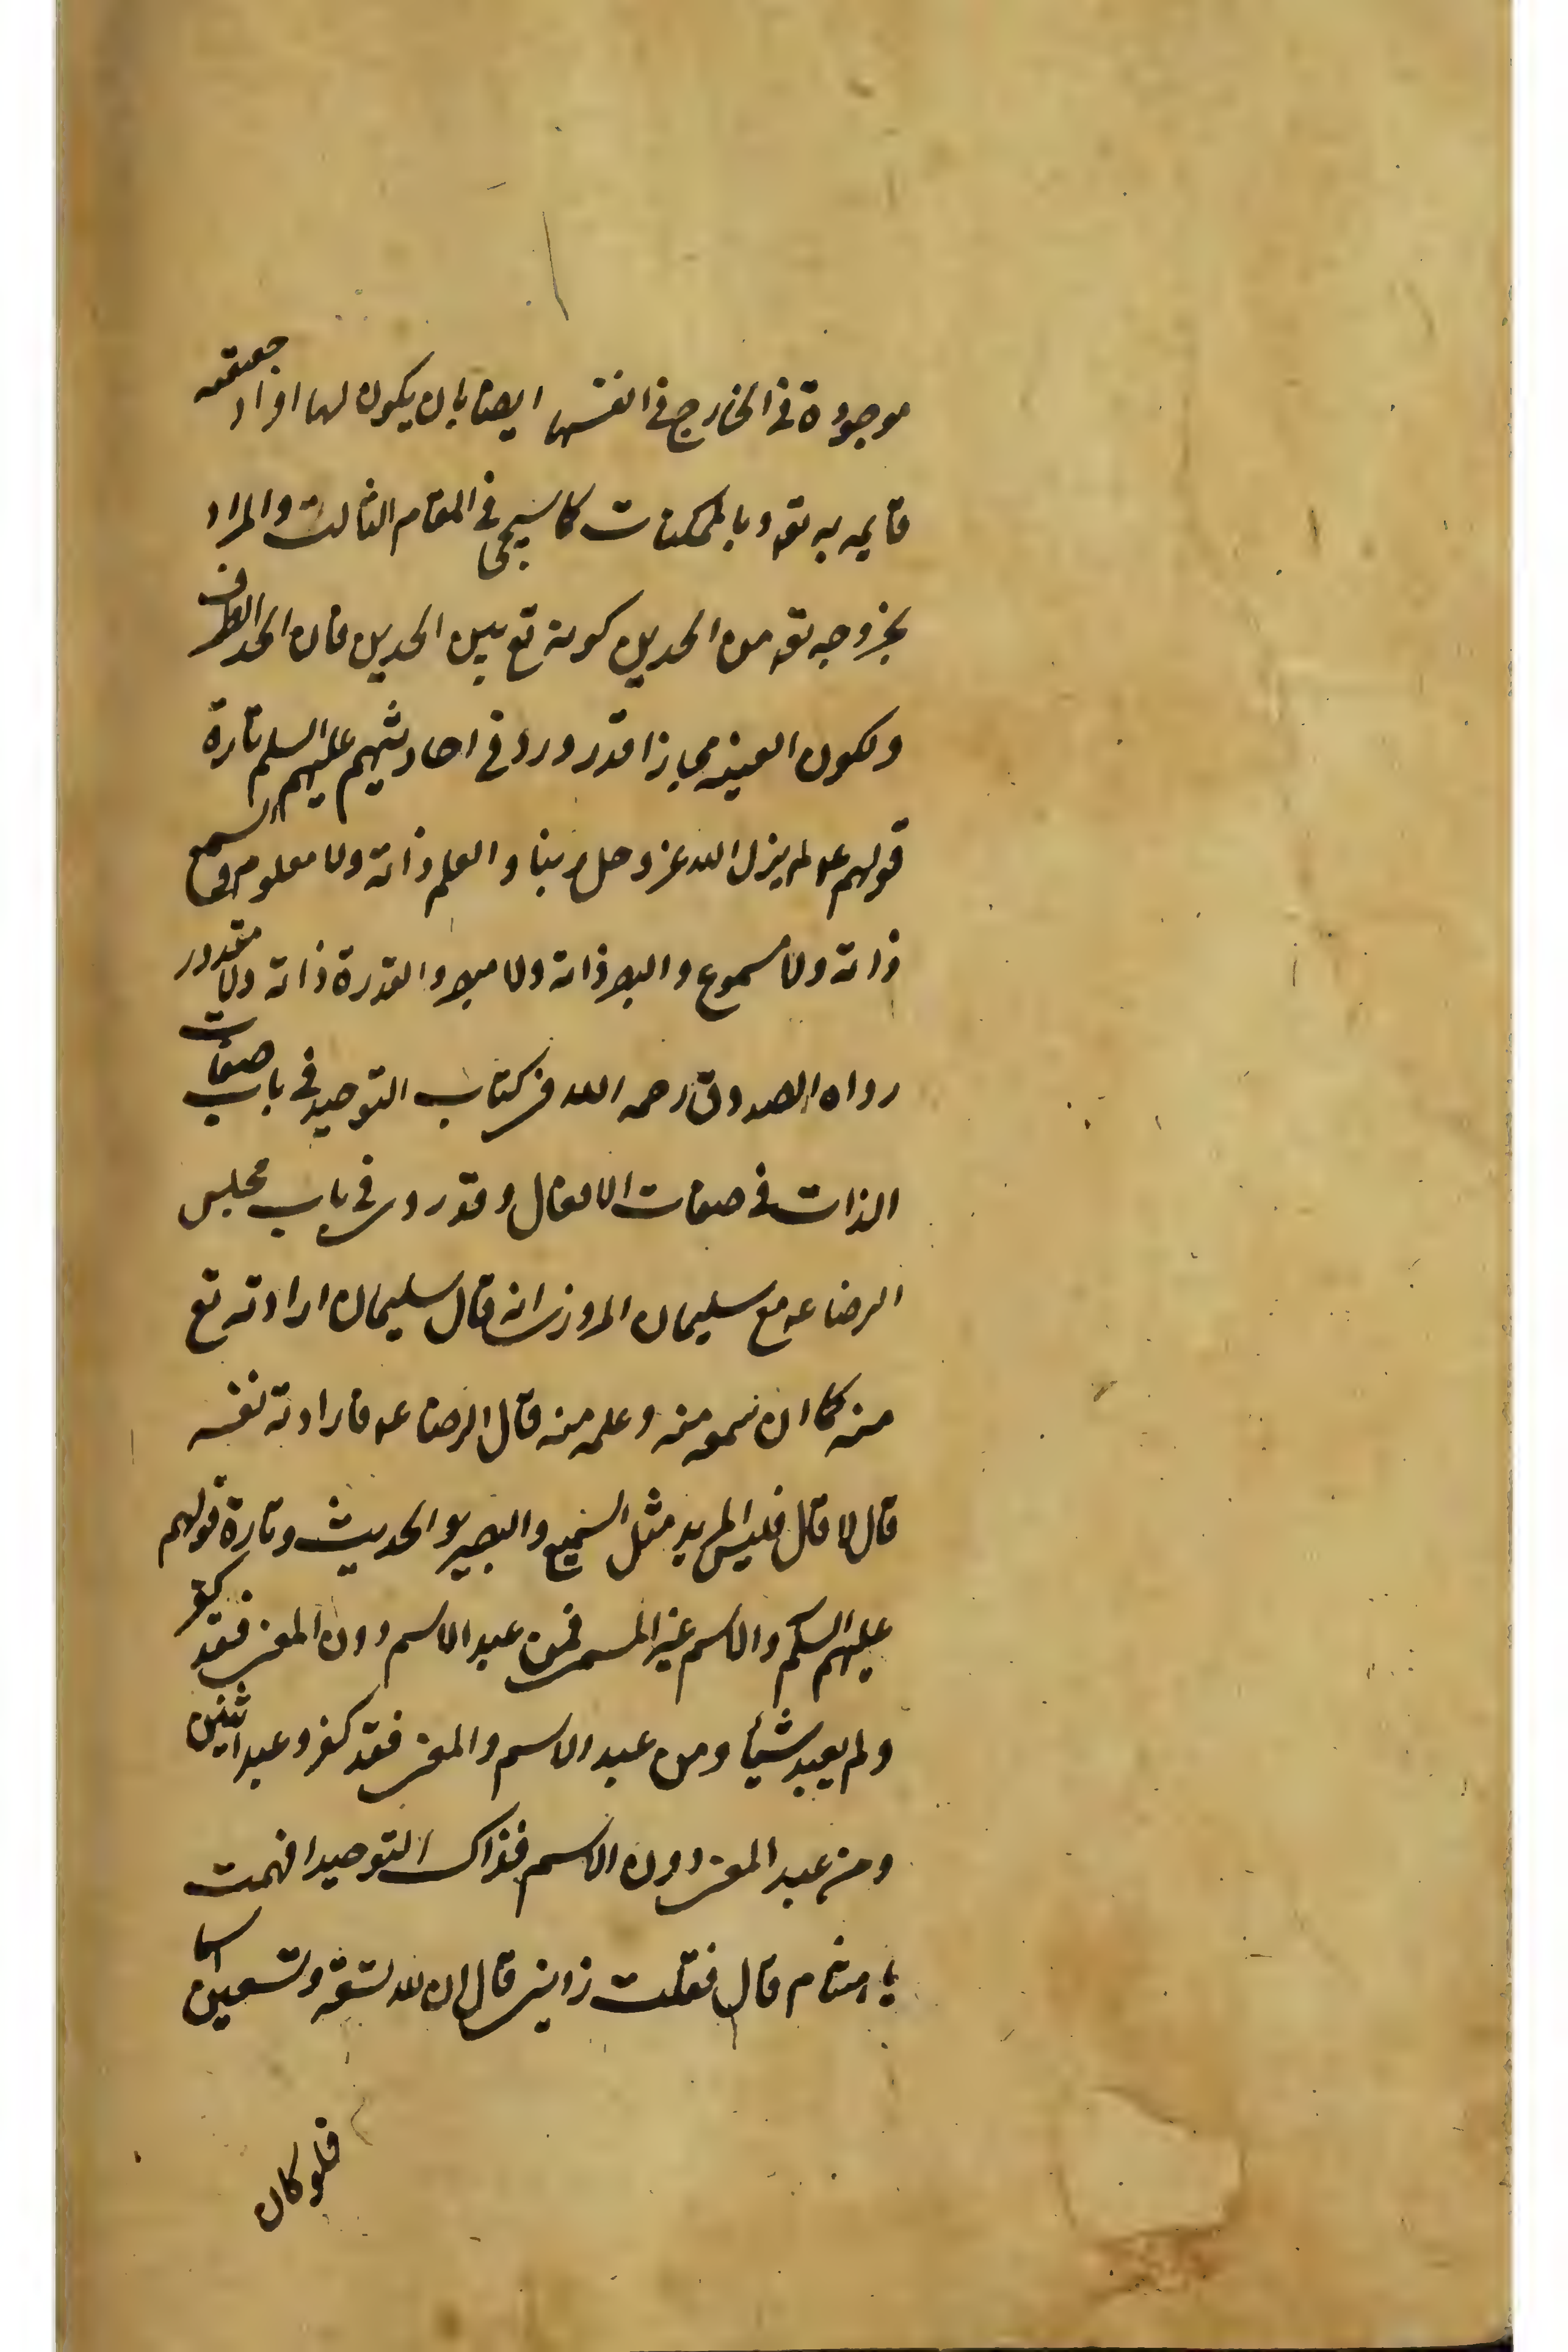 موجودة في الخارج في انفسها ايضا بان يكون لها افراد حقيقته
قايمه به تعه و بالممكنات كما سيجئ في المقام الثالث والمراد
بخروجه تعه من الحدين كونه تع بين الحدين فان الحد الطرف
ولكون العينيه مجازا قد ورد في احاديثهم عليهم السلم تارة
قولهم عه لم يزل الله عز وجل ربنا والعلم ذاته ولا معلوم والسمع
ذاته ولا مسموع والبصر ذاته ولا مبصر والقدرة ذاته ولا مقدور
رواه الصدوق رحمه الله في كتاب التوحيد في باب صفات
الذات في صفات الافعال وقد روى في باب مجلس
الرضا عه مع سليمان المروزى انه قال سليمان ارادته تع
منه كما ان سمعه منه وعلمه منه قال الرضا عه فارادته نفسه
قال لا قال فليس المريد مثل السميع والبصير والحديث وتارة قولهم
عليهم السلم والاسم غير المسمى فمن عبد الاسم دون المعنى فقد كفر
ولم يعبد شيأ ومن عبد الاسم والمعنى فقد كفر وعبد اثنين
ومن عبد المعنى دون الاسم فذاك التوحيد افهمت
يا هشام قال فقلت زدنى قال ان لله تسعة وتسعين اسما
فلو كان